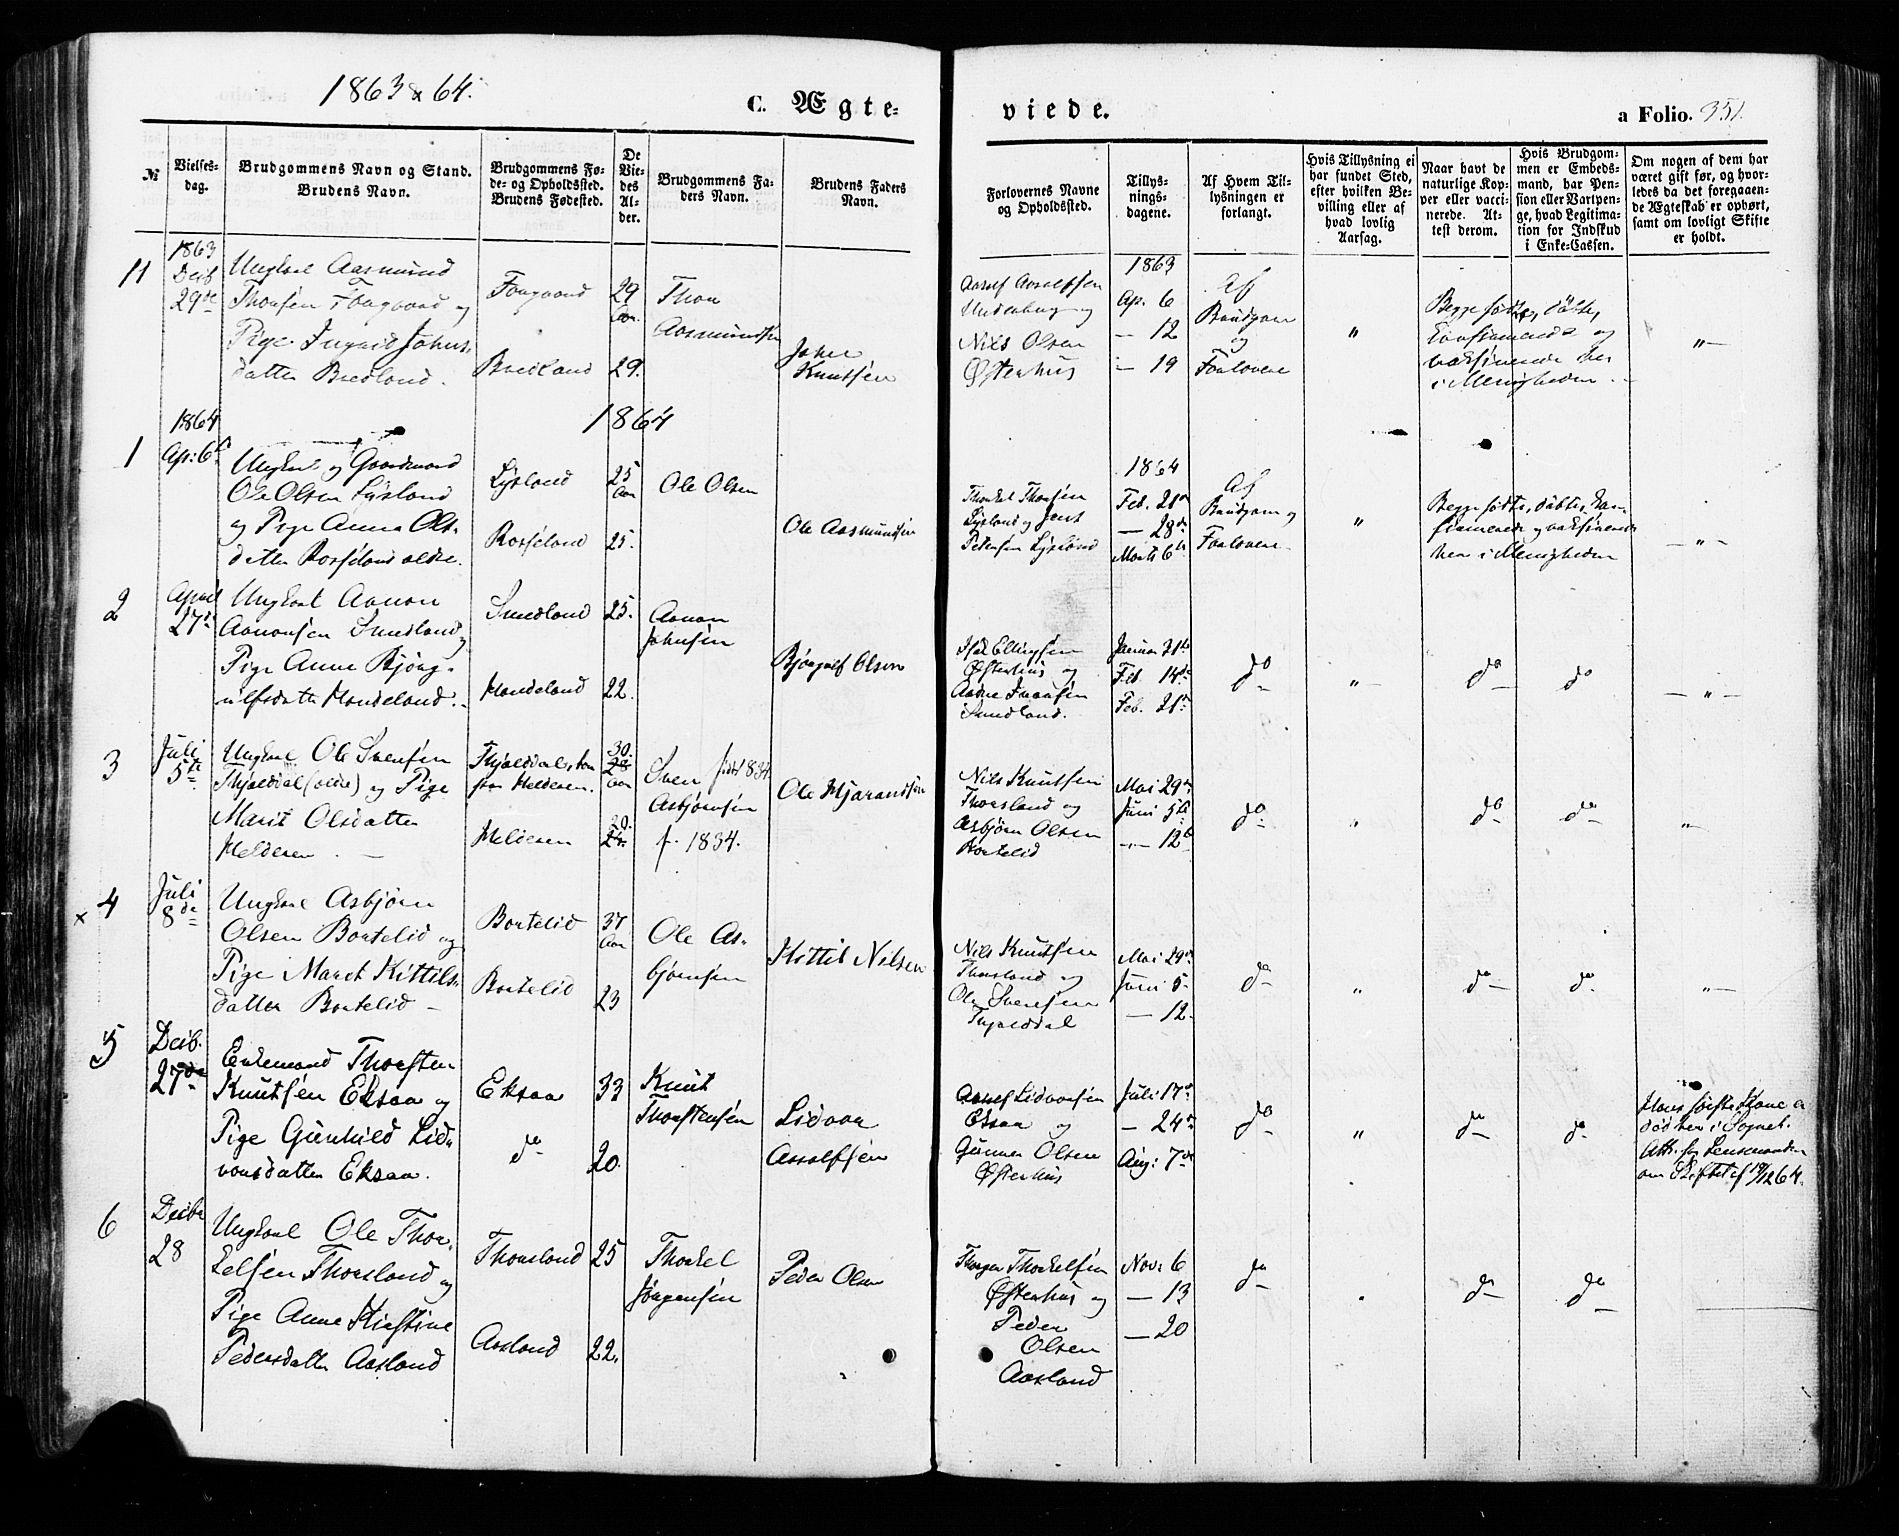 1863 & 64.
C. Ægte-
viede.
a Folio. 351.
№
Vielses-
dag.
Brudgommens Navn og Stand.
Brudens Navn.
Brudgommens Fø-
de- og Opholdssted.
Brudens Fødested.
De
Vie-
des
Al-
der.
Brudgommens Fa-
ders Navn.
Brudens Faders
Navn.
Forlovernes Navne
og Opholdssted.
Tillys-
nings-
dagene.
Af Hvem Til-
lysningen er
forlangt.
Hvis Tillysning ei
har fundet Sted,
efter hvilken Be-
villing eller af
hvad lovlig
Aarsag.
Naar havt de
naturlige Kop-
per eller vacci-
nerede. At-
test derom.
Hvis Brudgom-
men er Embeds-
mand, har Pen-
sion eller Vartpen-
ge, hvad Legitima-
tion for Indskud
i Enke-Cassen.
Om nogen af dem har
været gift før, og hvor-
ledes da det foregaaen-
de Ægteskab er ophørt,
samt om lovligt Skifte
er holdt.
11
1863
Decb
29de
Ungkarl Aasmund
Thorsen Faagvand og
Pige Ingrid Johns-
datter Breiland.
Faagvand
Breiland
29
Aar.
29.
Thor
Aasmundsen
John
Knutsen
Asslef Asslefsen
og
Nils Olsen
Østerhus
1863
Ap. 6
— 12
— 19
Af
Brudgom
og
Forlovere
"
Begge fødte, døbte,
Confirmerede og
vaksinerede her
i Menigheden.
"—
1864
1
1864
Ap: 6te
Ungkarl og Gaardmand
Ole Olsen Lysland
og Pige Anna Ols-
datter Rosseland
Lysland
Rosseland
25
Aar
25.
Ole Olsen
Ole Aasmundsen
Thorkel Thorsen
Lysland og Jens
Petersen Lysland
1864
Feb. 21de
— 28de
Marts 6te
Af
Brudgom og
Forlovere
"
Begge fødte, døbte, Con-
firmerede og vaksinerede
her i Menigheden
— " —
2
April
27de
Ungkarl Aanon
Aanonsen Smedland og
Pige Anne Bjørg-
ulfsdatter Handeland.
Smedland
Handeland
25.
22.
Aanon
Johnsen
Bjørgulf Olsen
Ellingsen
Østerhus og
Smedland.
Januar 31te
Feb. 14de
Feb. 21de
do
"—
do
do
— " —
3
Juli
5te
Ungkarl Ole Svensen
Thjælddal (ældre) og Pige
Marit Olsdatter
Helderen. —
Helderen
30.
28
Aar
20.
24.
Sven født 1834
Asbjørnsen
f. 1834.
Ole Hjarandsen
Nils Knutsen
Thorsland og
Asbjørn Olsen
Bortelid
Mai 29de
Juni 5te
—"— 12te
do
"
do
do
"—
x 4
Juli
8de
Ungkarl Asbjørn
Olsen Bortelid og
Pige Maret Kittils-
datter Bortelid —
Bortelid
Bortelid
37
Aar
23
Ole As-
bjørnsen
Kittil Nilsen
Nils Knutsen
Thorsland og
Ole Svensen
Thjælddal
Mai 29de
Juni 5.
— 12.
do
"
do
do
"—
5
Decb.
27de
Enkemand Thorsten
Knutsen Eksaa og
Pige Gunhild Lid-
vorsdatter Eksaa.
Eksaa
do
33
20.
Knut
Thorstensen
Lidvor
Asslefsen
Asslef Lidvorsen
Eksaa og
Gunnar Olsen
Østerhus
Juli 17de
— 24de
Aug: 7de
do
"
do
do
Hans første Kone er
død her i Sognet.
Att. fra Lensmanden
om Skiftet af 19/12 64.
6
Decbr
28
Ungkarl Ole Thor-
kelsen Thorsland og
Pige Anne Kirstine
Pedersdatter Aasland
Thorsland
Aasland
25
22.
Thorkel
Jørgensen
Peder Olsen
Thorger Thorkelsen
Østerhus og
Peder
Olsen
Aasland
Nov: 6
— 13
— 20
do
do
do